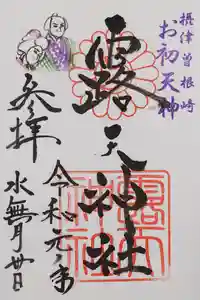 摂津曽根崎
お初天神
露天神社
参拝
令和元年
水無月廿日